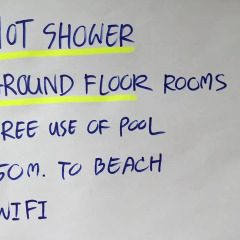 HOT SHOWER
GROUND FLOOR ROOMS
REE USE OF POOL
50M. TO BEACH
WIFI